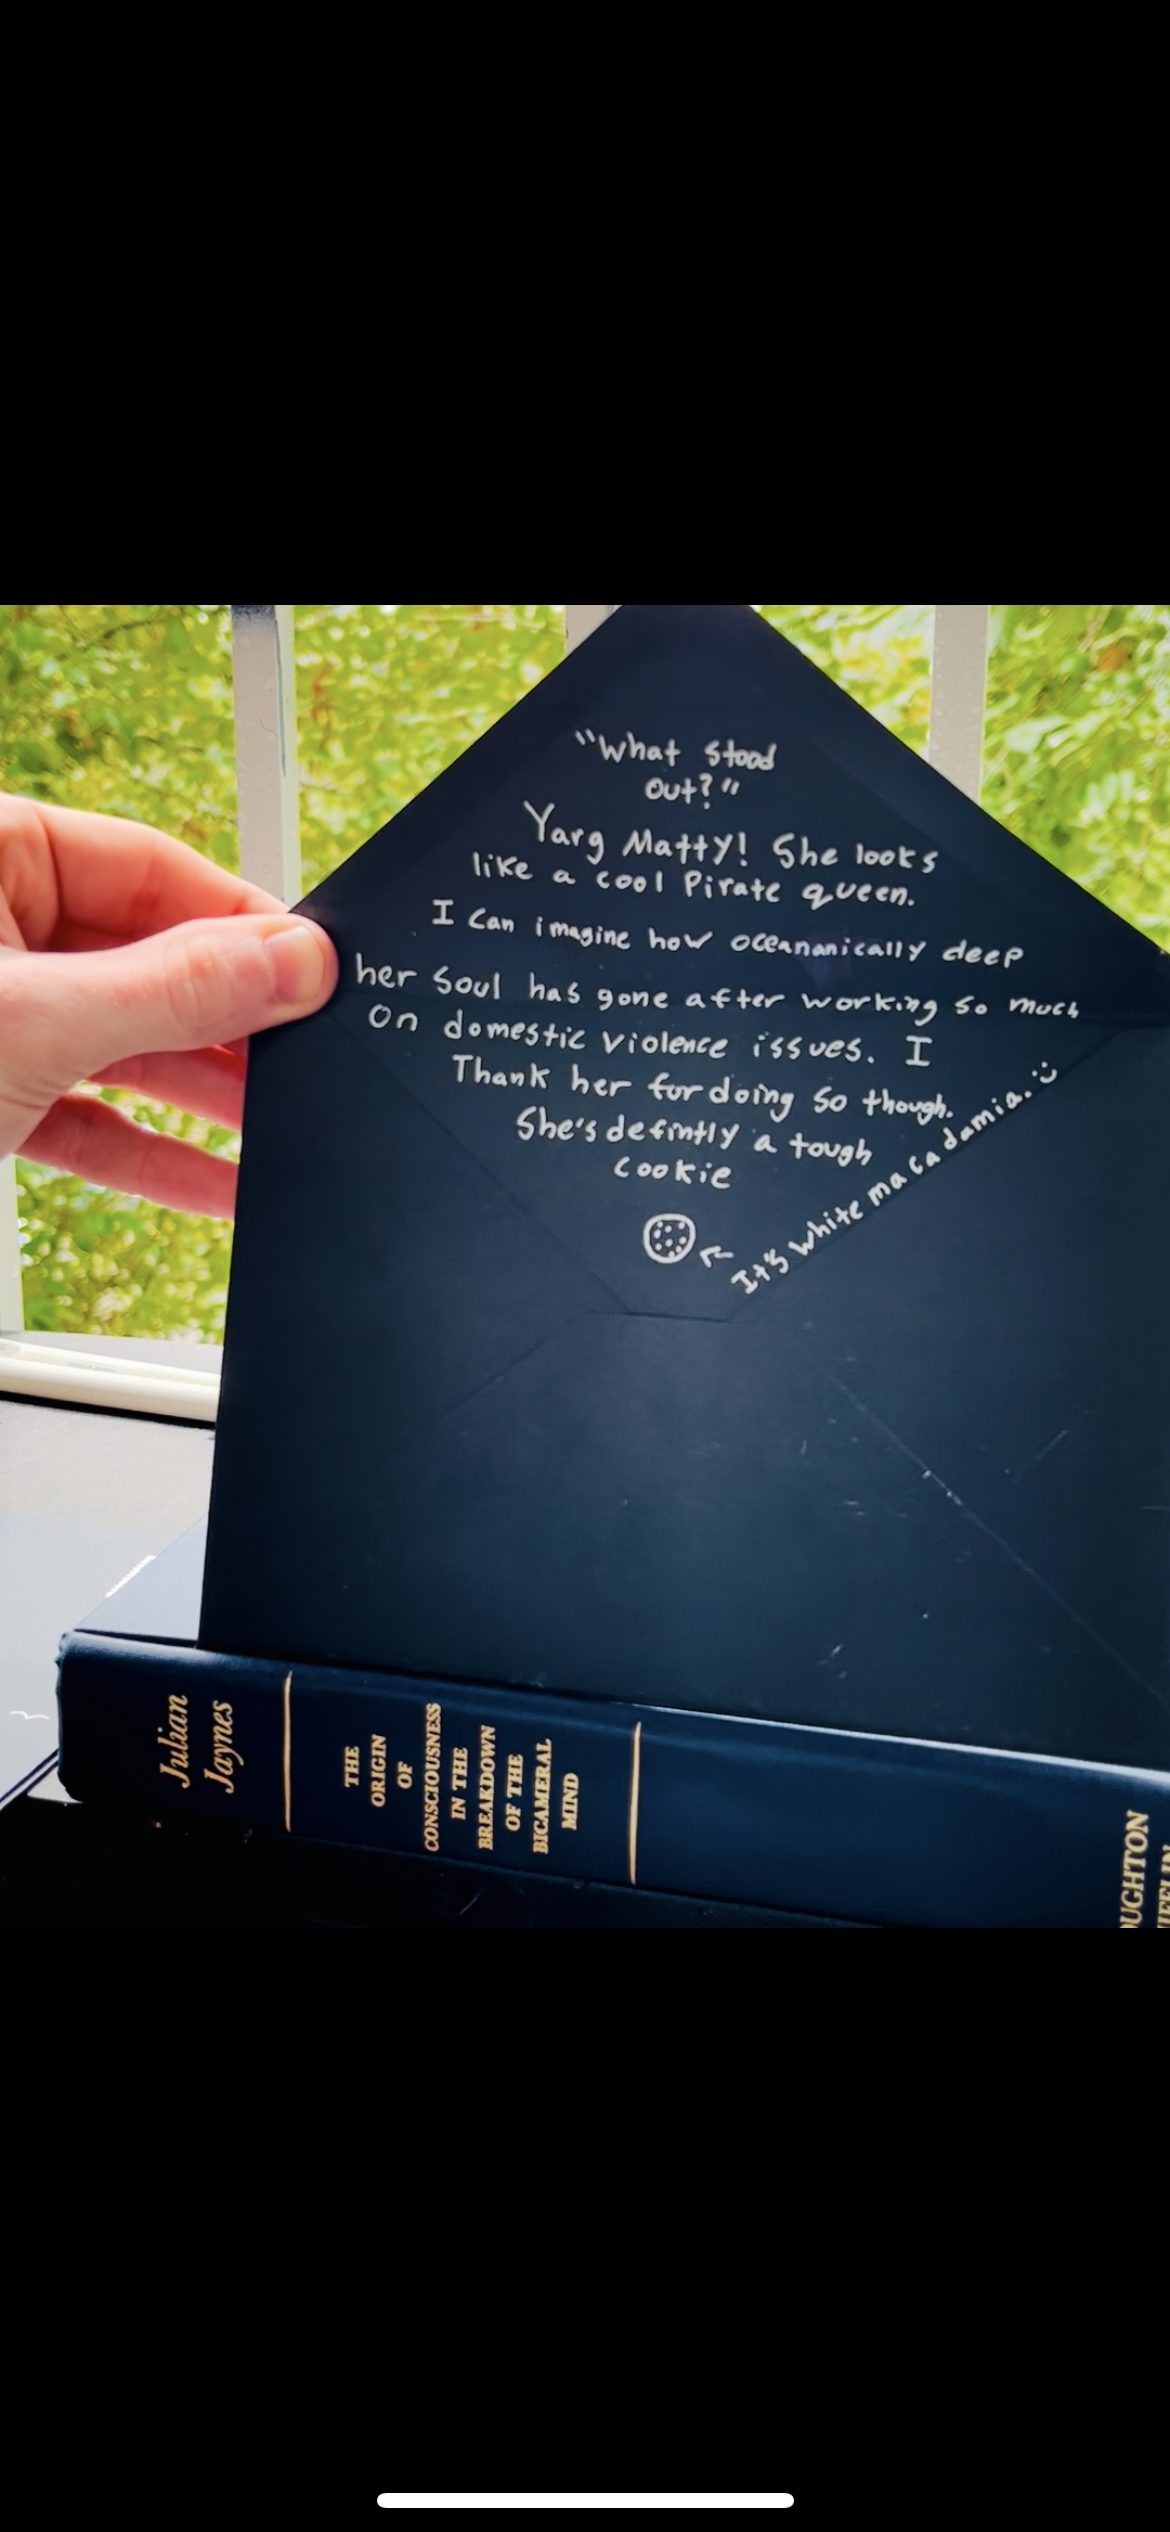 "What stood
out?"
Yarg Matty! She looks
like a cool Pirate queen.
I Can imagine how oceananically deep
her soul has gone after working so much
on domestic violence issues. I
Thank her for doing so though.
She's defintly a tough
cookie
It's white macadamia. :)
Julian
Jaynes
THE
ORIGIN
OF
CONSCIOUSNESS
IN THE
BREAKDOWN
OF THE
BICAMERAL
MIND
OUGHTON